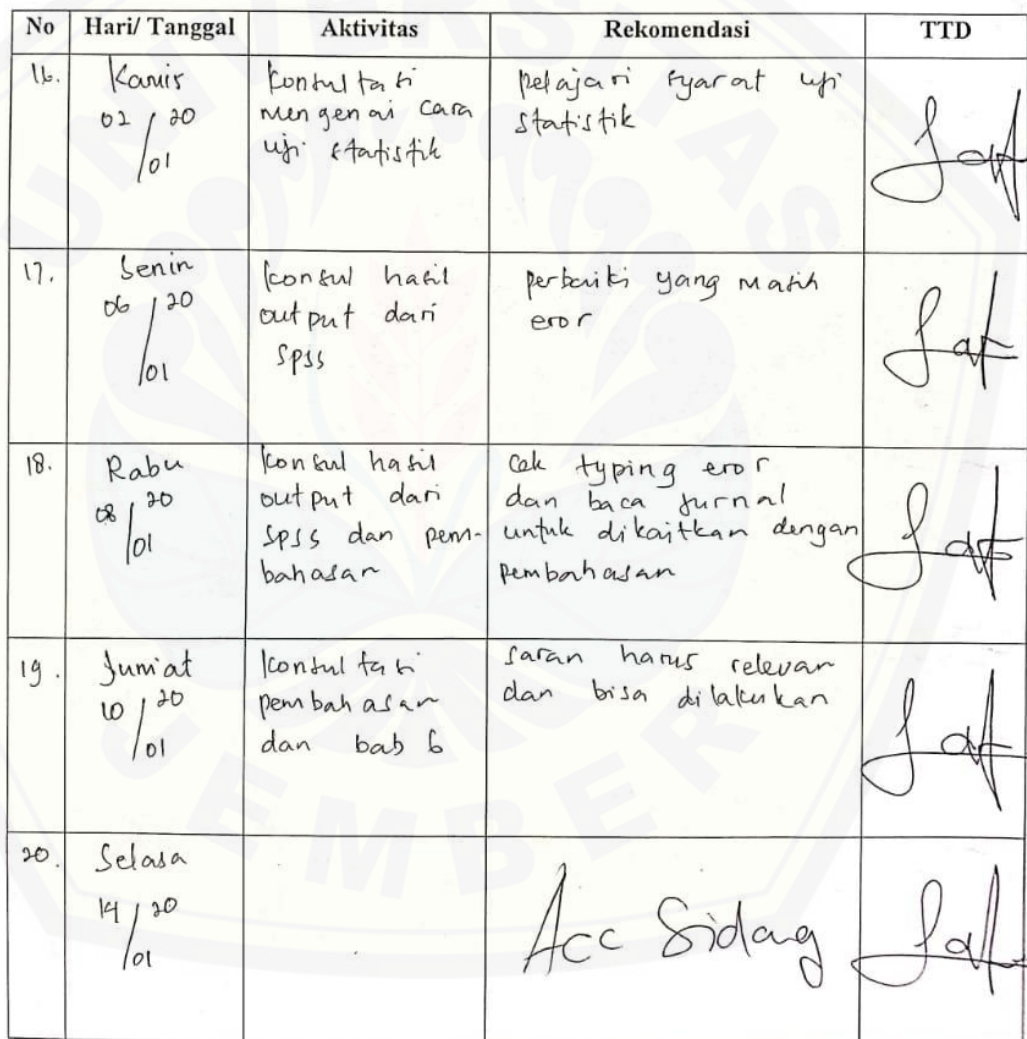 No Hari/ Tanggal Aktivitas Rekomendasi TTD
16. Kamis
02/01 20
Konsultasi
mengenai cara
uji statistik
pelajari syarat uji
statistik
17. Senin
06/01 20
Konsul hasil
output dari
SPSS
perbaiki yang masih
eror
18. Rabu
08/01 20
Konsul hasil
output dari
SPSS dan pem-
bahasan
Cek typing eror
dan baca jurnal
untuk dikaitkan dengan
pembahasan
19. Jum'at
10/01 20
Konsultasi
pembahasan
dan bab 6
saran harus relevan
dan bisa dilakukan
20. Selasa
14/01 20
Acc Sidang
UNIVERSITAS
JEMBER